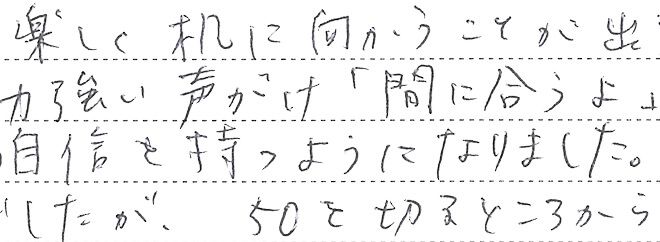 楽しく机に向かうことが出
力強い声がけ「間に合うよ」
自信を持つようになりました。
したが、50を切るところから